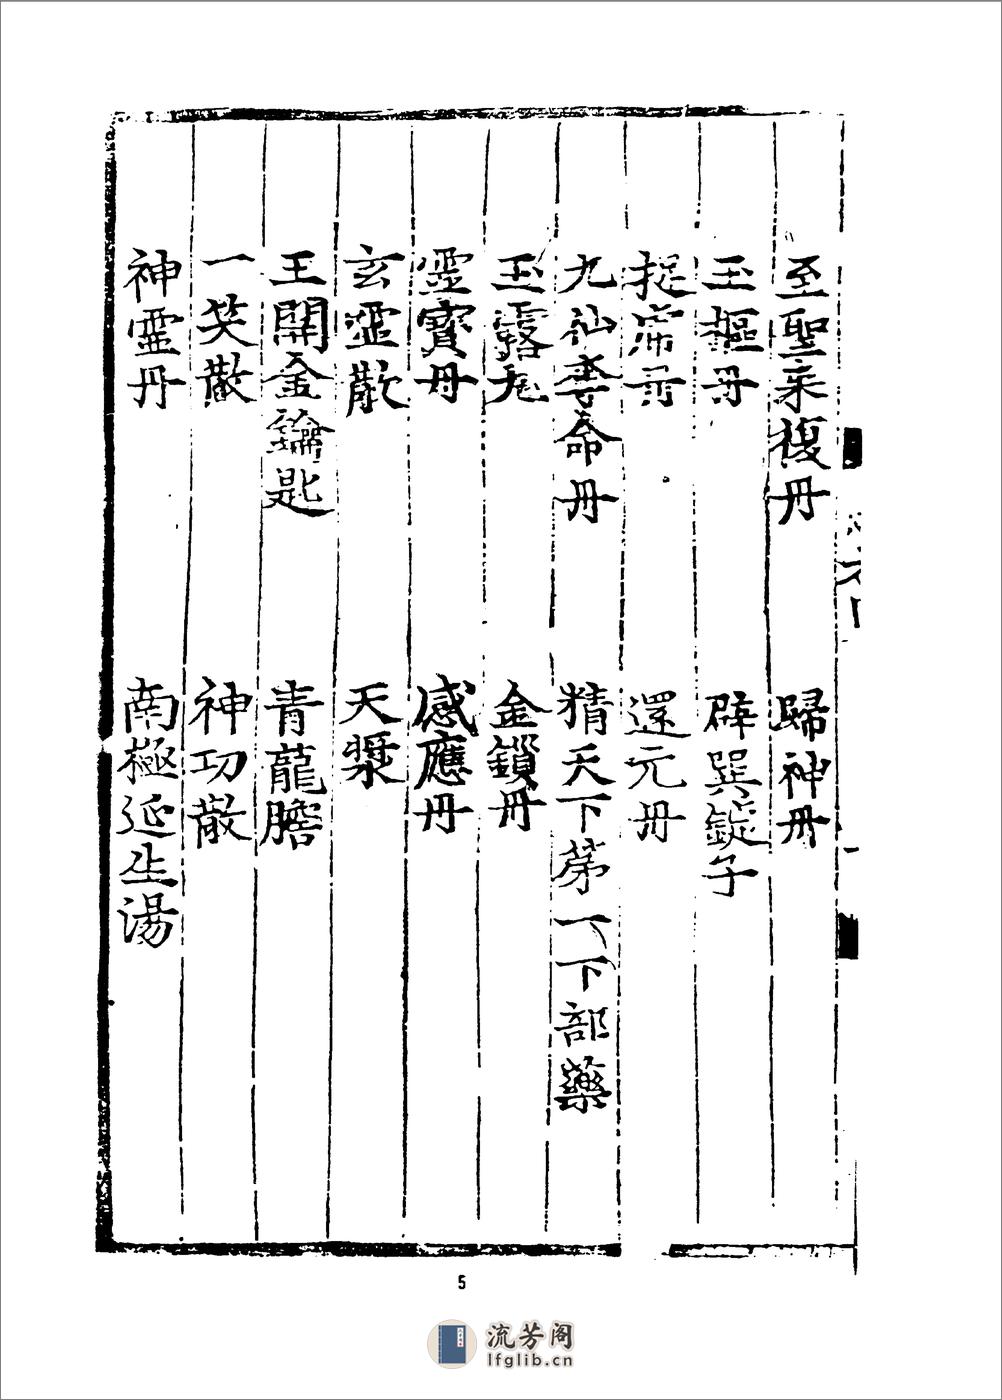 至聖来復丹 歸神丹
玉樞丹 辟巽錠子
捉虎丹 還元丹
九仙奪命丹 精天下第一下部藥
玉露丸 金鎖丹
靈寶丹 感應丹
玄靈散 天漿
王開金鑰匙 青龍膽
一笑散 神功散
神靈丹 南極延生湯
5
流芳阁
lfglib.cn